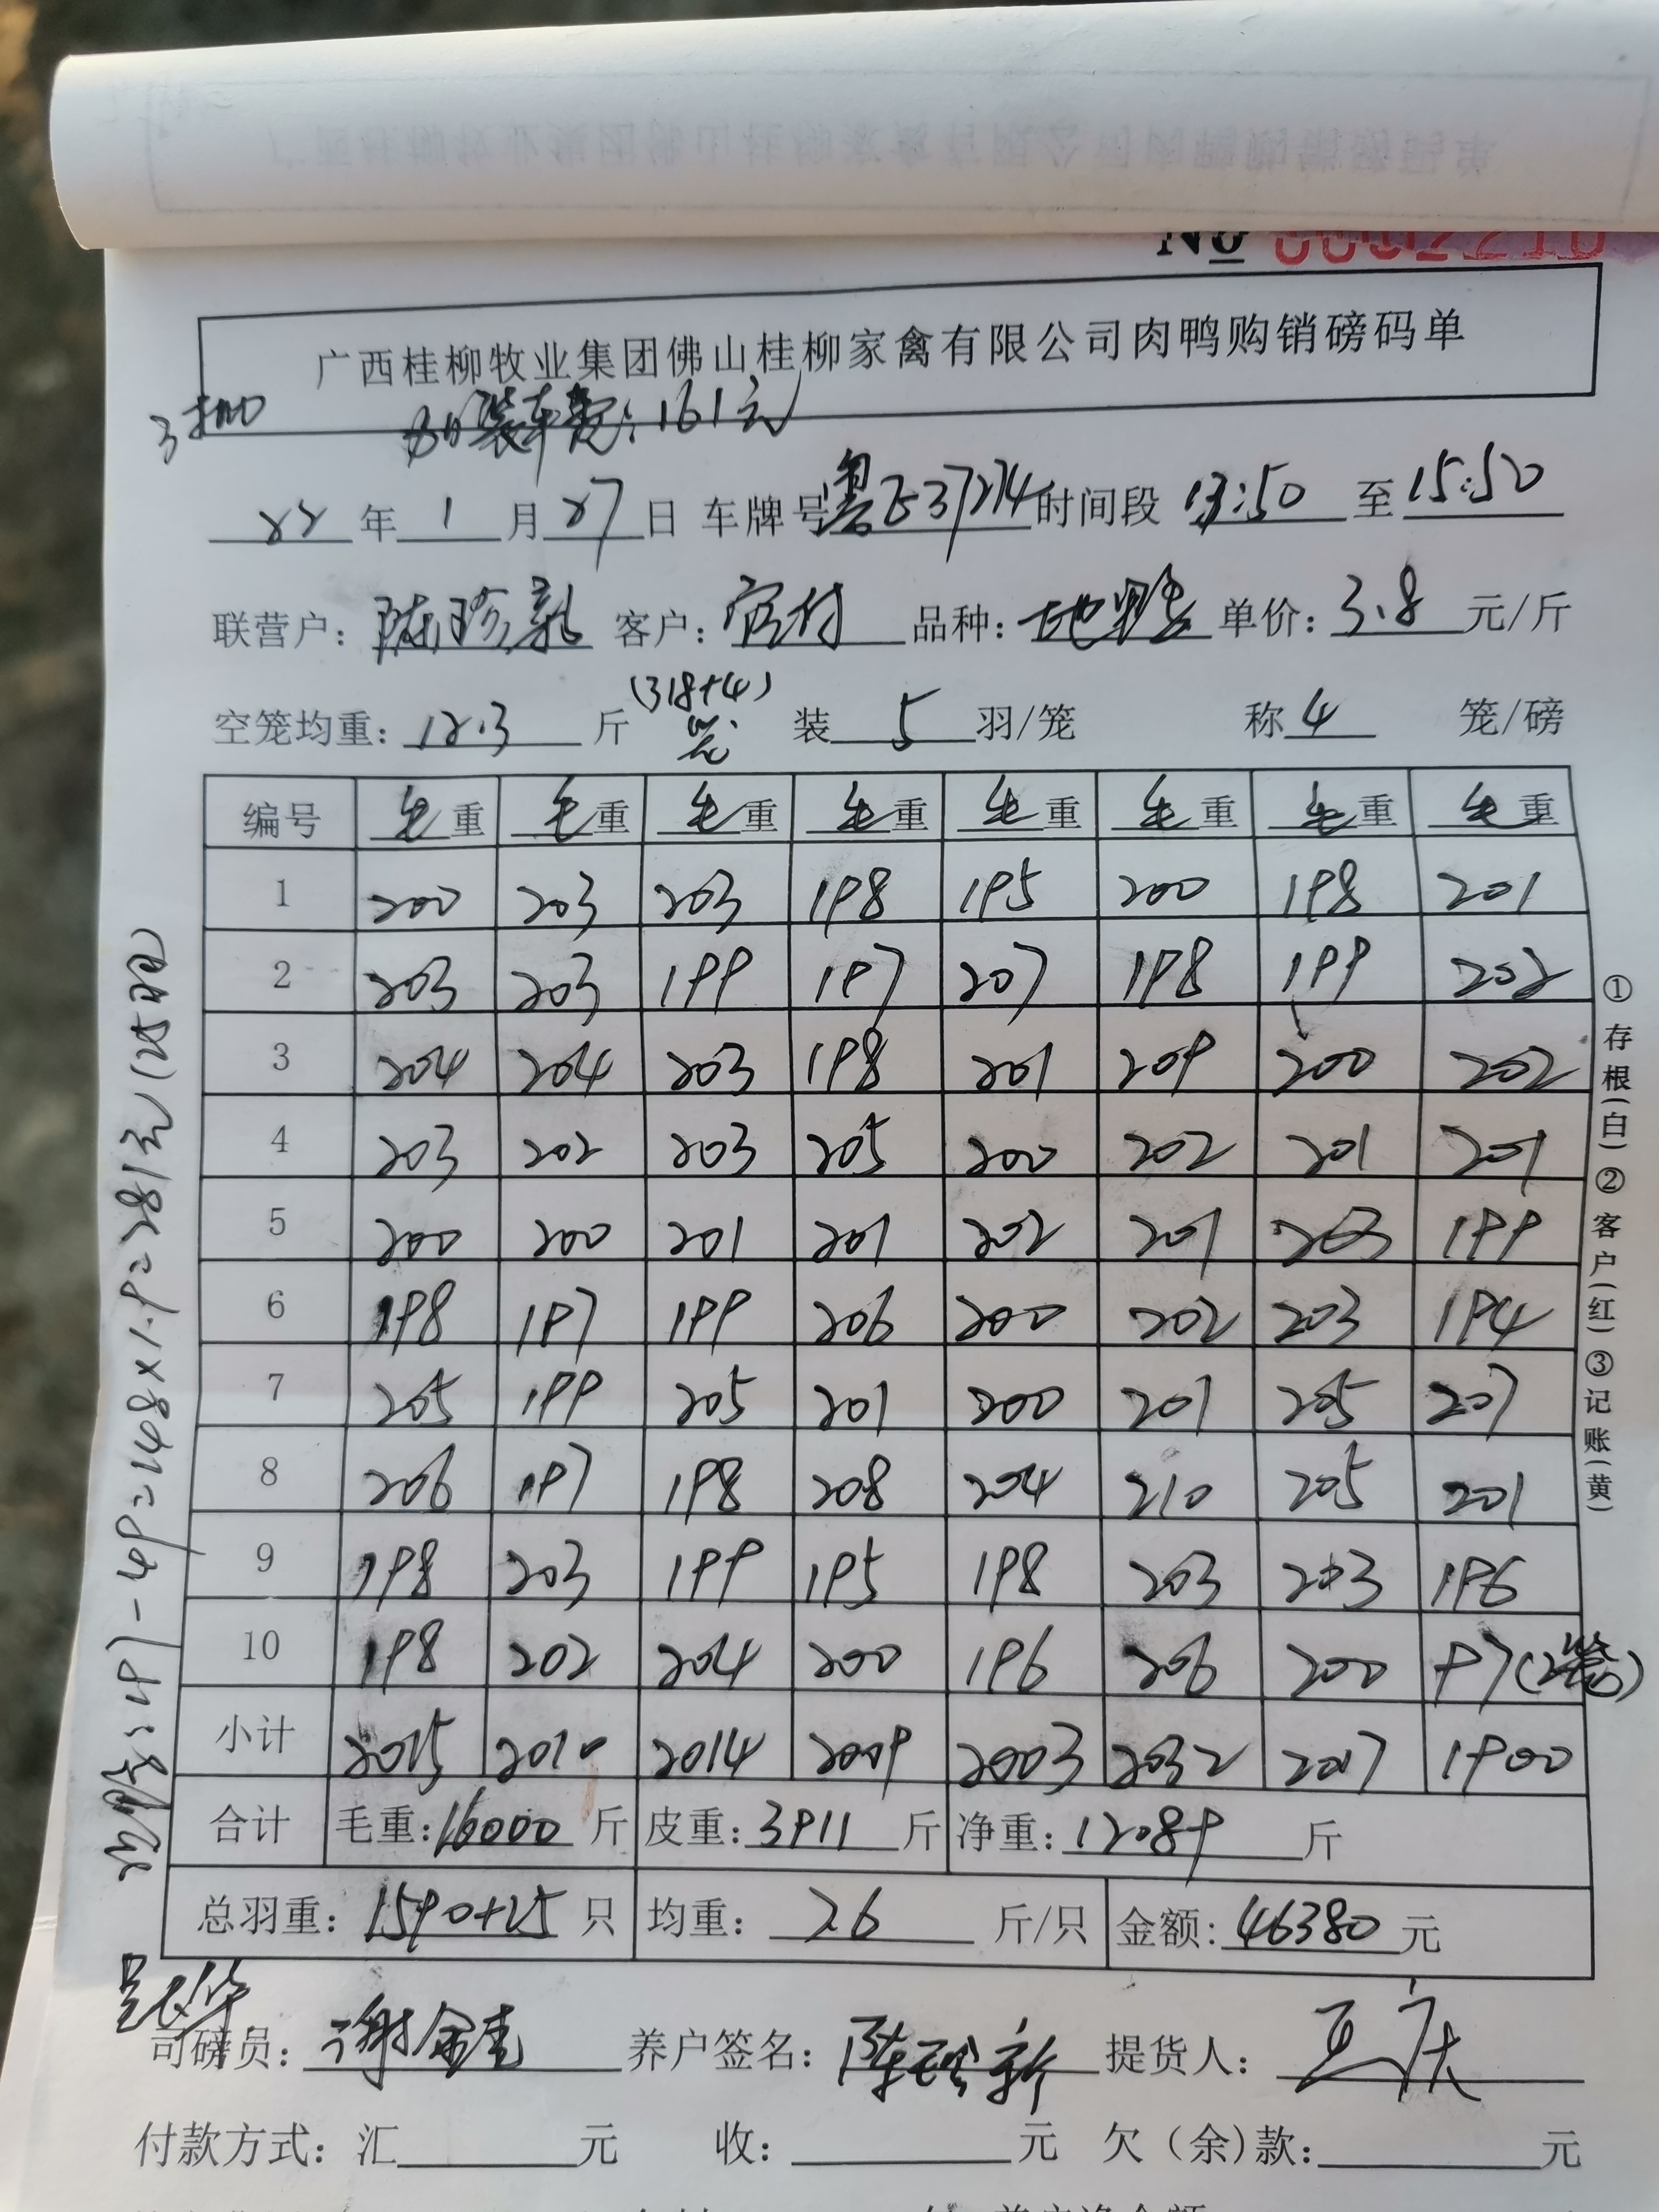 No 0002210
广西桂柳牧业集团佛山桂柳家禽有限公司肉鸭购销磅码单
装车费:161元
22年1月27日 车牌号粤E37274时间段13:50至15:50
联营户: 陈珍新 客户: 品种: 单价:3.8元/斤
空笼均重:12.3斤 (318+4)笼 装5羽/笼 称4笼/磅
编号 毛重 毛重 毛重 毛重 毛重 毛重 毛重 毛重
1 200 203 203 198 195 200 198 201
2 203 203 199 197 207 198 199 202
3 204 204 203 198 201 209 200 202
4 203 202 203 205 200 202 201 201
5 200 200 201 201 202 201 203 199
6 198 197 199 206 200 202 203 194
7 205 199 205 201 200 201 205 207
8 206 197 198 208 204 210 205 201
9 198 203 199 195 198 203 203 196
10 198 202 204 200 196 206 200 97(2笼)
小计 2015 2010 2014 2009 2003 2032 2017 1900
合计 毛重:16000斤 皮重:3911斤 净重:12089斤
总羽重:1590+25只 均重:7.6斤/只 金额:46380元
司磅员: 养户签名:陈珍新 提货人:
付款方式:汇 元 收: 元 欠(余)款: 元
197-49=148×1.9=281元(25只)
①存根(白)②客户(红)③记账(黄)